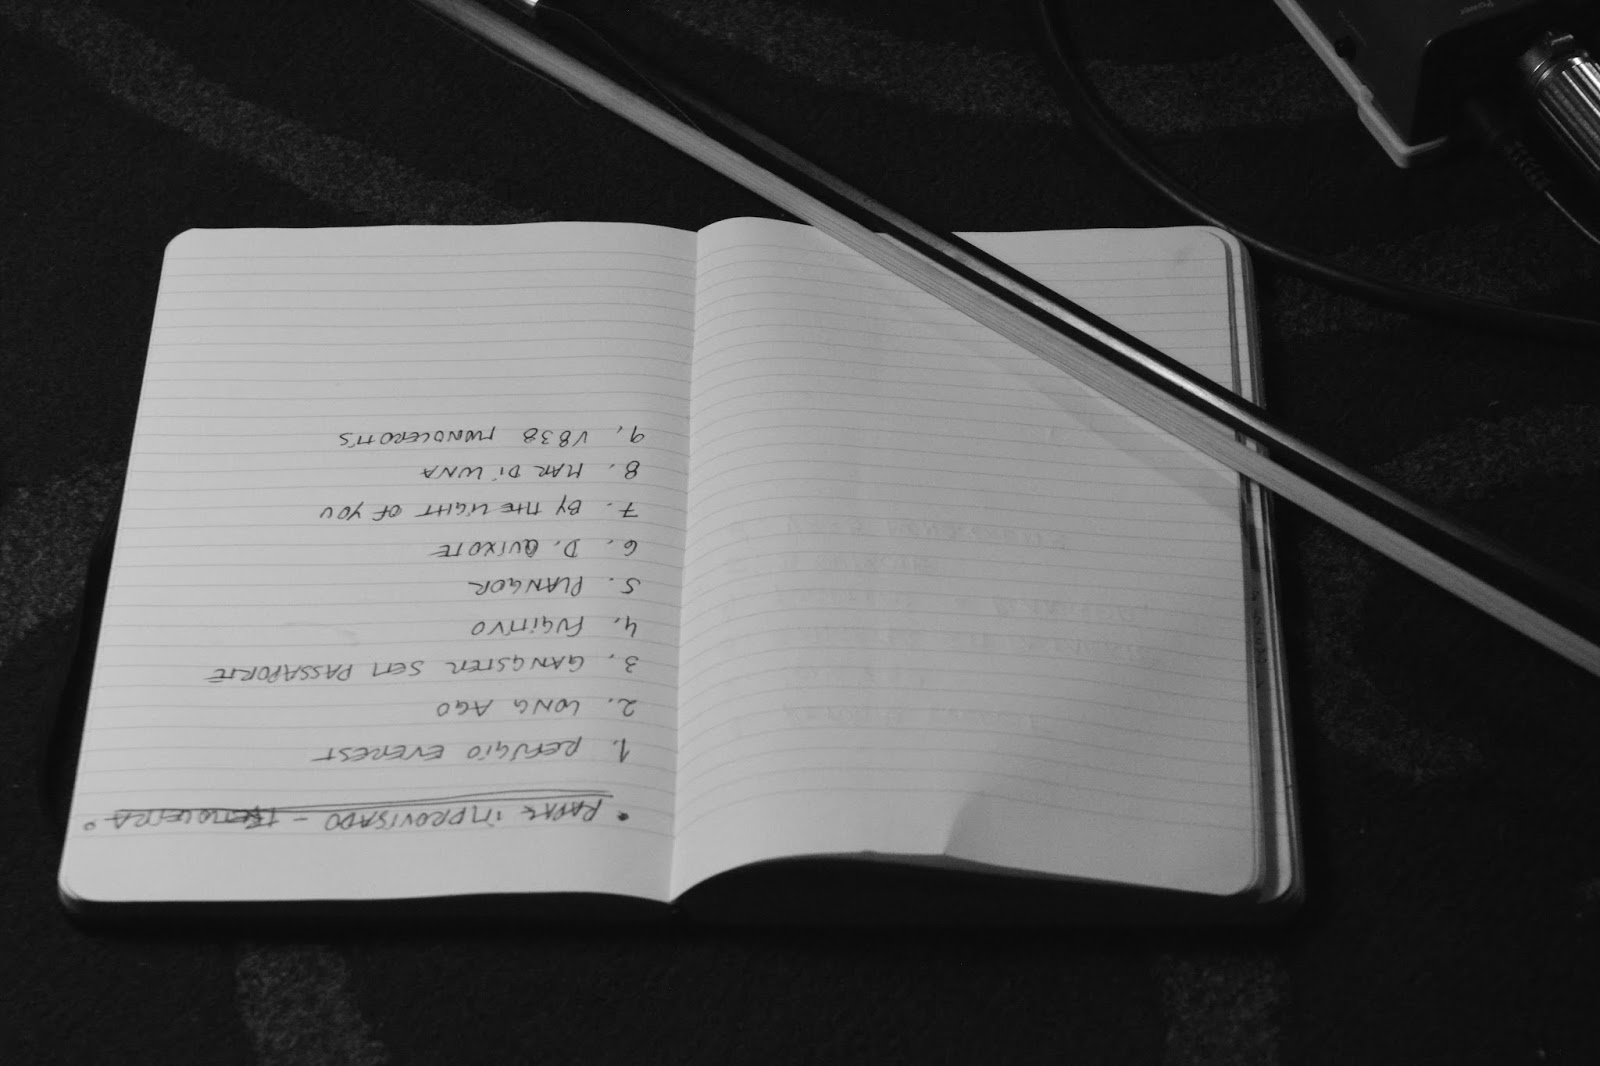 • RAPAZ IMPROVISADO -
1. REFÚGIO EVEREST
2. LONG AGO
3. GANGSTER SEM PASSAPORTE
4. FUGITIVO
5. PLANGOR
6. D. QUIXOTE
7. BY THE LIGHT OF YOU
8. MAR DI LUNA
9. V838 MONOCEROTIS
POWER